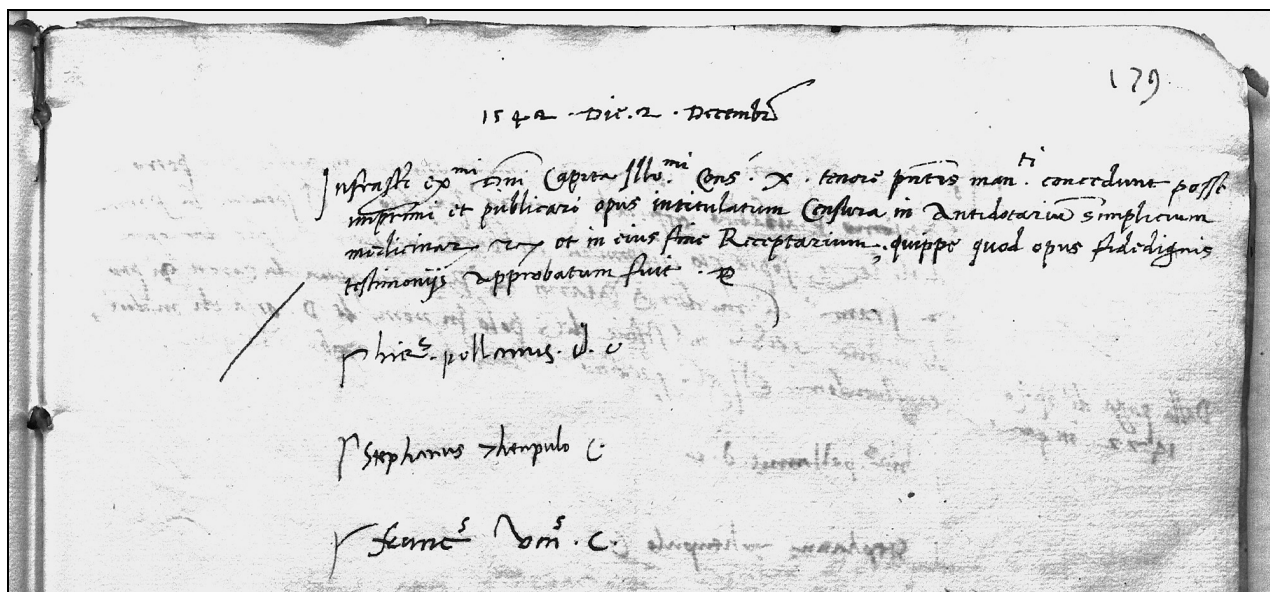 179
1542 . Die . 2 . Decembr
Infrascti Ex.mi Dni Capita Ill.mi Cons. X. tenore pntis man.ti concedunt posse
imprimi et publicari opus intitulatum Censura in Antidotarium Simplicium
medicinar et in eius fine Receptarium, quippe quod opus fidedignis
testimonijs approbatum fuit .
hie.s pollanus d. c
Stephanus Thenpulo C
franc.s C.